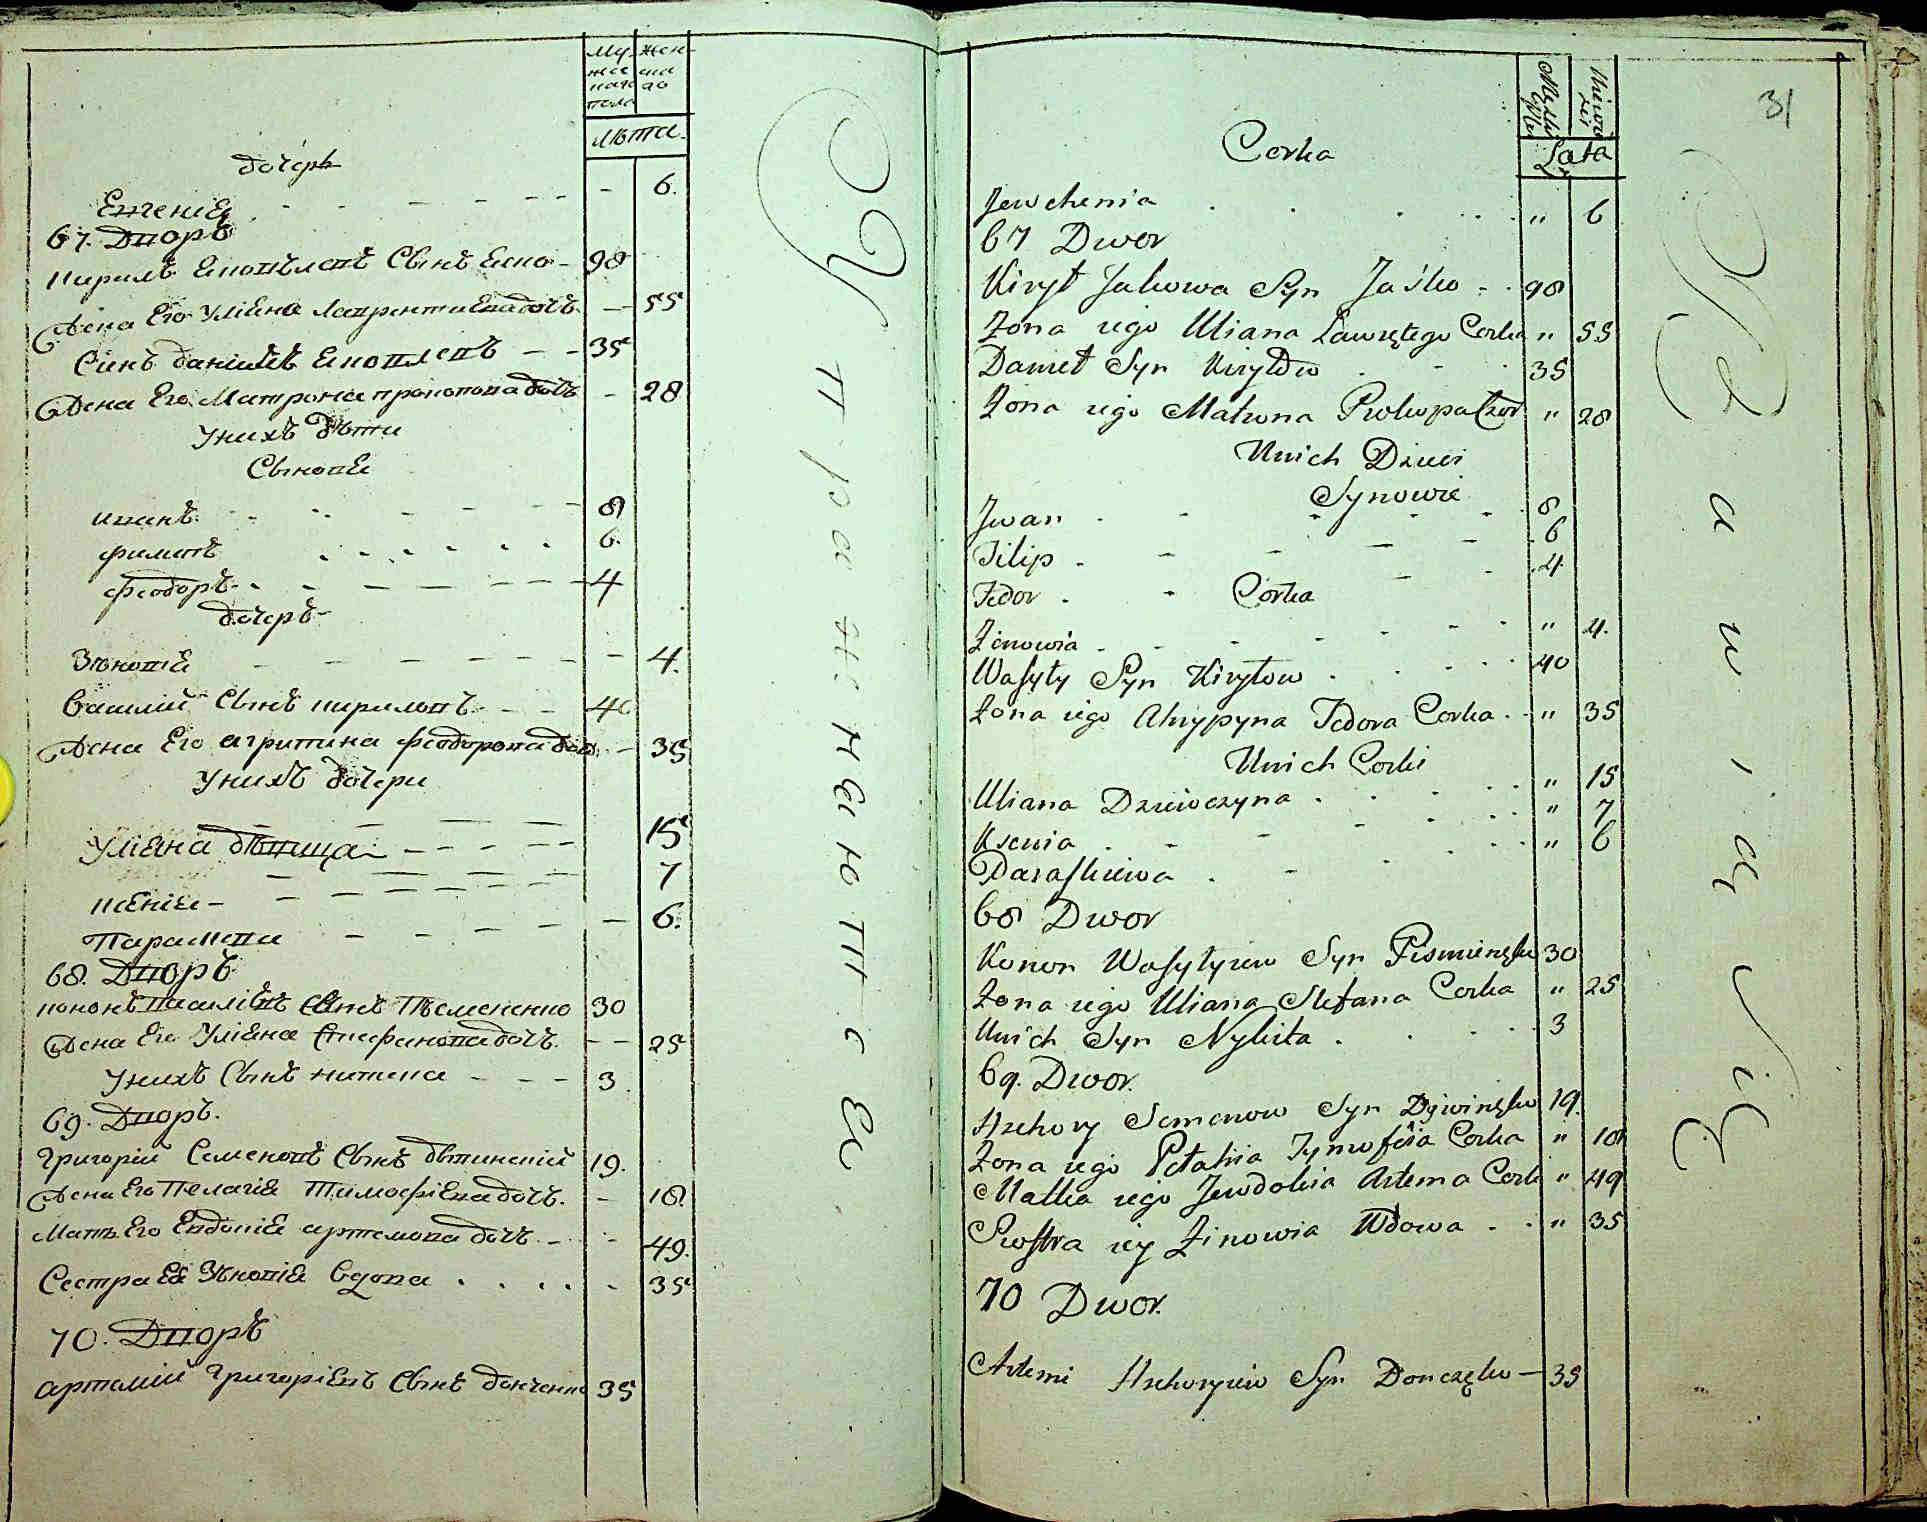 Му
жес
каго
пола
Жен
ска
го
лѣта
дочерь
Евгениѧ - - - - - 6.
67. Дворъ
Кирилъ Яковлевъ Сынъ Яско - 98
Жена Его Улiѧна Лаврентиева дочъ - 55
Синъ данiилъ Яковлевъ - - 35
Жена Его Матрона прокопова дочъ - 28
Унихъ дѣти
Сыновѧ
иванъ - - - - - - 8
филипъ . . . . . . 6.
феодоръ - - - - - - 4
дочеръ
Зѣновiѧ - - - - - - - 4.
Василий Сынъ кириловъ - - - 40
Жена Его агрипина феодорова дочъ - 35
Унихъ дочери
Улiѧна дѣвица - - - - - 15
ксѣнiѧ - - - - - 7
Параскева - - - - - 6.
68. Дворъ
кононъ василiевъ Сынъ Писмененко 30
Жена Его Улiѧна Стефанова дочъ. - - 25
Унихъ Сынъ никита - - - 3
69. Дворъ.
Григорiй Семеновъ Сынъ двинскiй 19.
Жена Его Пелагiѧ Тимофiева дочъ. - 18.
Мать Его Евдокiѧ артемова дочъ - - 49.
Сестра Еѧ Зѣновiѧ вдова . . . . - 35
70. Дворъ
артемiй Григорiевъ Сынъ донченко 35
У п р а ж н ѧ ю т с ѧ
31
Lata
Corka
Jewchenia . . . . . . " 6
67 Dwor
Kirył Jakowa Syn Jaśko - . 98
Żona iego Uliana Ławrętego Corka " 55
Daniel Syn Kiryłow . - . 35
Żona iego Matrona Prokopa Cor " 28
Unich Dzieci
Synowie
Jwan . - - - - . 8
Filip . - - - - . 6
Fedor . - - - . 4
Corka
Zenowia . - - - - - " 4.
Wasyły Syn Kiryłow . . . . . 40
Żona iego Ahrypyna Fedora Corka . - " 35
Unich Corki
Uliana Dziewczyna . . . . . " 15
Ksenia . . - - . . . " 7
Paraskiewa . - . . . " 6
68 Dwor
Konon Wasyłyiew Syn Pismienęko 30
Żona iego Uliana Stefana Corka " 25
Unich Syn Nykita . . . . 3
69. Dwor.
Hrehory Semenow Syn Dźwinęko 19.
Żona iego Pełahia Tymofeia Corka " 18
Matka iego Jewdokia Artema Cork " 49
Siostra iey Zinowia Wdowa - . " 35
70 Dwor.
Artemi Hrehoryiew Syn Donczęko - 35